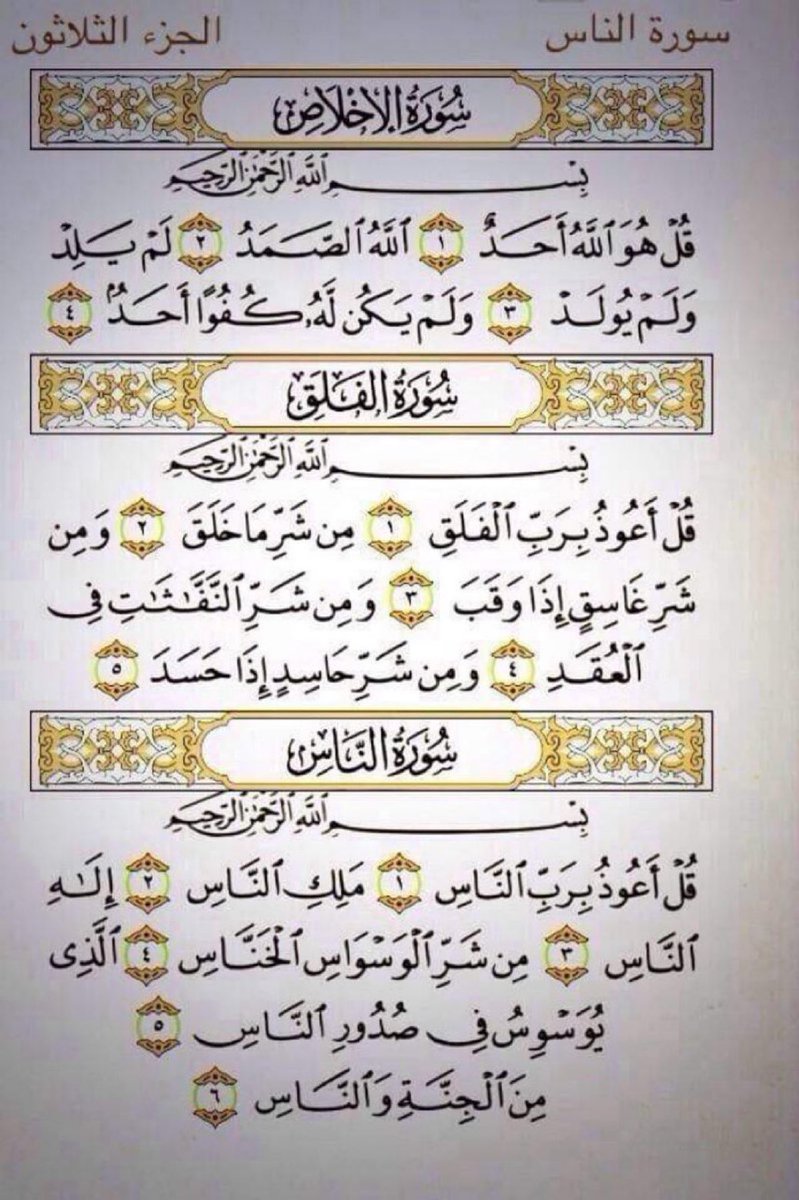 سورة الناس
الجزء الثلاثون
سُورَةُ الإِخْلَاصِ
بِسْمِ اللَّهِ الرَّحْمَٰنِ الرَّحِيمِ
قُلْ هُوَ ٱللَّهُ أَحَدٌ ١ ٱللَّهُ ٱلصَّمَدُ ٢ لَمْ يَلِدْ
وَلَمْ يُولَدْ ٣ وَلَمْ يَكُن لَّهُۥ كُفُوًا أَحَدٌۢ ٤
سُورَةُ الفَلَقِ
بِسْمِ اللَّهِ الرَّحْمَٰنِ الرَّحِيمِ
قُلْ أَعُوذُ بِرَبِّ ٱلْفَلَقِ ١ مِن شَرِّ مَا خَلَقَ ٢ وَمِن
شَرِّ غَاسِقٍ إِذَا وَقَبَ ٣ وَمِن شَرِّ ٱلنَّفَّٰثَٰتِ فِى
ٱلْعُقَدِ ٤ وَمِن شَرِّ حَاسِدٍ إِذَا حَسَدَ ٥
سُورَةُ النَّاسِ
بِسْمِ اللَّهِ الرَّحْمَٰنِ الرَّحِيمِ
قُلْ أَعُوذُ بِرَبِّ ٱلنَّاسِ ١ مَلِكِ ٱلنَّاسِ ٢ إِلَٰهِ
ٱلنَّاسِ ٣ مِن شَرِّ ٱلْوَسْوَاسِ ٱلْخَنَّاسِ ٤ ٱلَّذِى
يُوَسْوِسُ فِى صُدُورِ ٱلنَّاسِ ٥
مِنَ ٱلْجِنَّةِ وَٱلنَّاسِ ٦